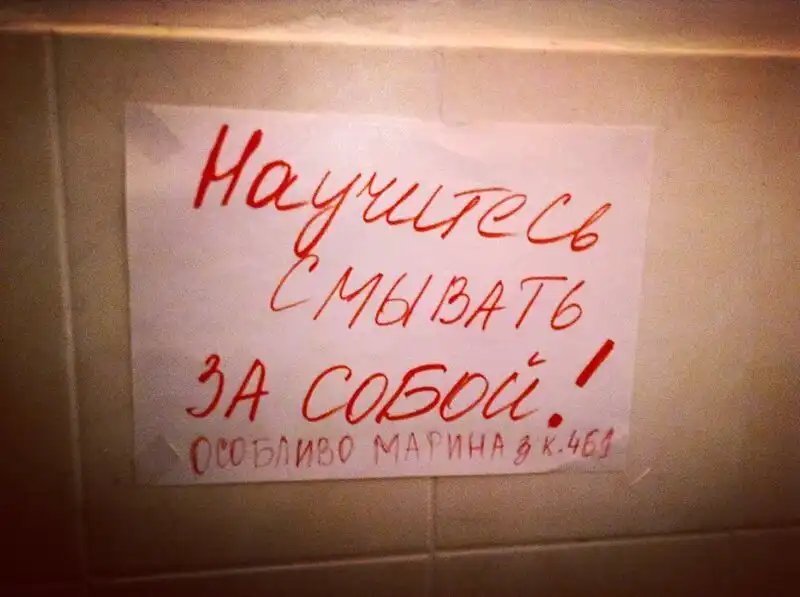 Научитесь
СМЫВАТЬ
ЗА СОБОЙ!
ОСОБЛИВО МАРИНА з к. 461